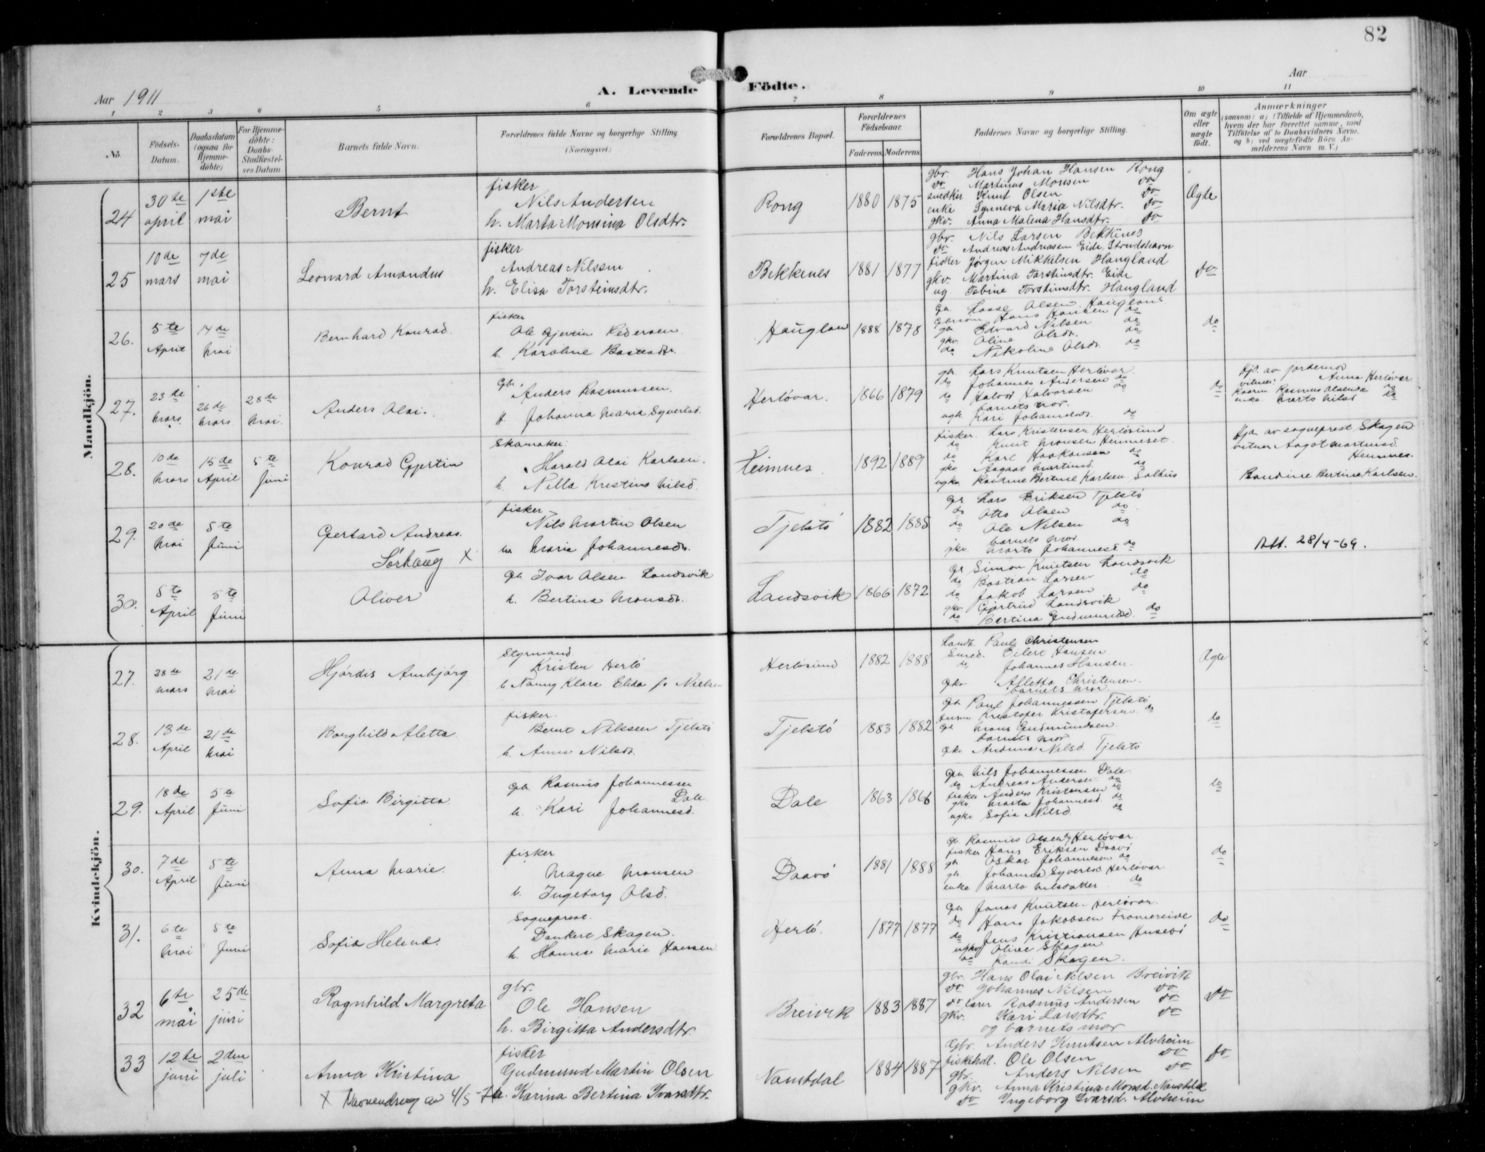 82
Aar 1911
A. Levende Födte.
Aar
1 2 3 4 5 6 7 8 9 10 11
No.
Födsels-Datum.
Daabsdatum (ogsaa for Hjemmedöbte)
For Hjemmedöbte: Daabs-Stadfæstelses Datum
Barnets fulde Navn.
Forældrenes fulde Navne og borgerlige Stilling
(Næringsvei)
Forældrenes Bopæl.
Forældrenes Födselsaar.
Faderens. Moderens.
Faddernes Navne og borgerlige Stilling.
Om ægte eller uægte födt.
Anmærkninger
Mandkjön.
24 30te april 1ste mai Bernt
fisker
Nils Andersen
h. Marta Monsina Olsdtr.
Rong 1880 1875
gbr. Hans Johan Hansen Rong
do Martinus Monsen do
snedker Knut Olsen do
enke Synneva Maria Nilsdtr. do
gkv. Anna Malena Hansdtr. do
Ægte
25 10de mars 7de mai Leonard Amandus
fisker
Andreas Nilssen
h. Elisa Torsteinsdtr.
Bekkenes 1881 1877
gbr. Nils Larsen Bekkenes
do Andreas Andreassen Eide, Strudshavn
fisker Jørgen Mikkelsen Haugland
gkv. Martina Torsteinsdtr. Eide
ug Tobine Torsteinsdtr. Haugland
do
26. 5te April 14de Mai Bernhard Konrad.
fisker
Ole Gjertin Pedersen
h. Karoline
Hauglan 1888 1878
Lasse Olsen Haugland
Hans Hansen do
Edvard Nilsen do
Oline Olsdr. do
do Nikoline Olsdr. do
do
27. 23de Mars 26de Mars 28de Mai. Anders Olai.
Gbr.
Anders Rasmussen.
h. Johanna Maria Syversd.
Herlövar. 1866 1879
Lars Knutsen Herlövar
do Johannes Andersen do
do Halvor Halvorsen do
barnets mor
ugk Kari Johannesdr. do
do
Hjd. av jordemor
vitner: Anna Herlövar
enke Marta Nilsd do
28. 10de Mars 15de April 5te Juni Konrad Gjertin
Skomaker
Harald Olai Karlsen.
h. Nilla Kristine Nilsd.
Heimnes 1892 1889
fisker Lars Kristensen Herlösund
do Knut Monsen Hemneset.
do Karl do
gkv Aagaat Martinsd. do
ugkv Karstine Bertine Karlsen Salhus
Hjd. av sogneprest Skagen
vitner Aagot Martinsd.
Hemnes.
Bertine Karlsen.
29. 20de Mai 5te Juni Gerhard Andreas.
Sörhaug X
fisker
Nils Martin Olsen
h. Maria Johannesdr.
Tjeldstö 1882 1888
Gbr Lars Eriksen Tjelstö
do Otto Olsen do
do Ole Nilsen do
barnets mor
gkv. Marta Johannesd do
Att. 28/4-69.
30. 5te April 5te Juni Oliver
Gbr Ivar Olsen Landsvik
h. Bertina Monsdr.
Landsvik 1866 1872
Gr Simon Knutsen Landsvik
do Bastian Larsen do
do Jakob Larsen do
gkv. Gjertrud Landsvik
do Bertina Gudmundsd. do
Kvindekjön.
27. 28de Mars 21de Mai Hjördis Ambjörg
Styrmand
Kristen Herlö
h. Nanny Klara Elida f. Nilsen
Herlösund 1882 1888
Landh. Paul Christensen
Smed. Eilert Hansen
do Johannes Hansen.
Gkv Aletta Christensen.
barnets mor
Ægte
28. 13de April 21de Mai Borghild Aletta
fisker
Bernt Nilssen Tjelstö
h. Anna Nilsdr.
Tjelstö 1883 1882
Gbr Paul Johannessen Tjelstö
Kristofer Kristofersen do
Gr Mons Gudmundsen
barnets mor
gkv Andrina Nilsd Tjelstö
do
29. 18de April 5te Juni Sofia Birgitta
Gbr Rasmus Johannessen
Dale
h. Kari Johannesd.
Dale 1863 1866
Gbr Nils Johannessen Dale
do Andreas Andersen do
fisker Anders Kristensen do
gkv Marta Johannesd do
ugkv Sofia Nilsd. do
do
30. 7de April 5te Juni Anna Marie.
fisker
Magne Monsen
h. Ingeborg Olsd.
Daavö 1881 1888
Gr Rasmus Olsen Herlövar
fisker Hans Eriksen Daavö
gbr Oskar Johannesen do
gkv Johanna Syversd. Herlövar
enke Marta Nilsdatter do
do
31. 6te Mai 5te Juni Sofia Helene.
Sogneprest.
Dankert Skagen.
h. Hanna Marie Hansen
Herlö. 1877 1877
Gbr Jonas Knutsen Herlövar.
do Hans Jakobsen Tromereide
do Jens Kristiansen Husebö
ugkv Oline Skagen
do Skagen.
do
32 6te mai 25de juni Ragnhild Margreta
gbr.
Ole Hansen
h. Birgitta Andersdtr.
Breivik 1883 1887
gbr. Hans Olai Nilsen Breivik
do Johannes Nilsen do
Rasmus Andersen do
gkv. Kari Larsdtr. do
og barnets mor
do
33 12te juni 2den juli Anna Kristina
fisker
Gudmund Martin Olsen
h. Karina Bertina Ivarsdtr.
Vamtdal 1884 1887
Gbr. Anders Knutsen Alvheim
fiskehdl. Ole Olsen do
gbr. Anders Nilsen do
gkv. Anna Kristina Monsd.
do Ingeborg Ivarsd. Alvheim
do
X Navnendring av 4/5